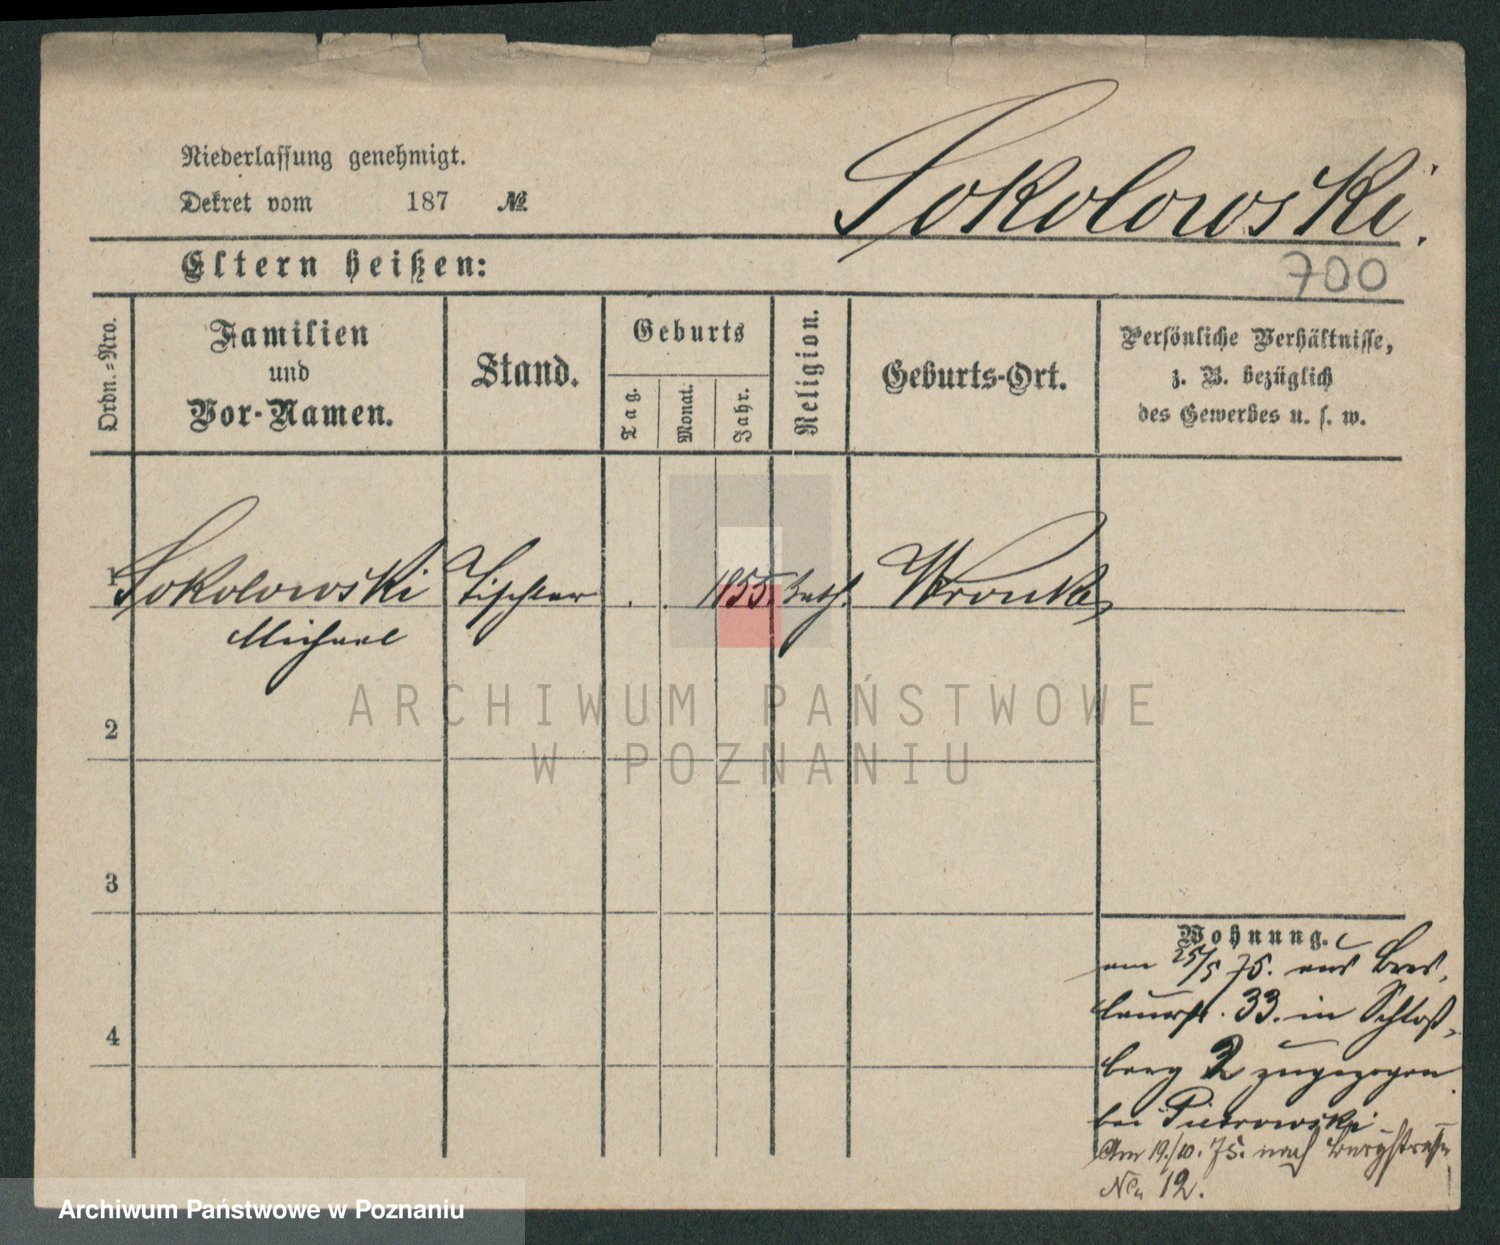 Niederlassung genehmigt.
Dekret vom 187 №
Sokolowski.
Eltern heißen:
700
Ordn.-Nro.
Familien
und
Vor-Namen.
Stand.
Geburts
Tag.
Monat.
Jahr.
Religion.
Geburts-Ort.
Persönliche Verhältnisse,
z. B. bezüglich
des Gewerbes u. s. w.
1 Sokolowski Tischler . . 1855. kath. Wronke
Michael
ARCHIWUM PAŃSTWOWE
W POZNANIU
2
3
4
Wohnung.
am 25/5 75. aus Bres-
lauerst. 33. in Schloß-
berg 2 zugezogen
bei Piotrowski
Am 19./10. 75. nach
No 12.
Archiwum Państwowe w Poznaniu